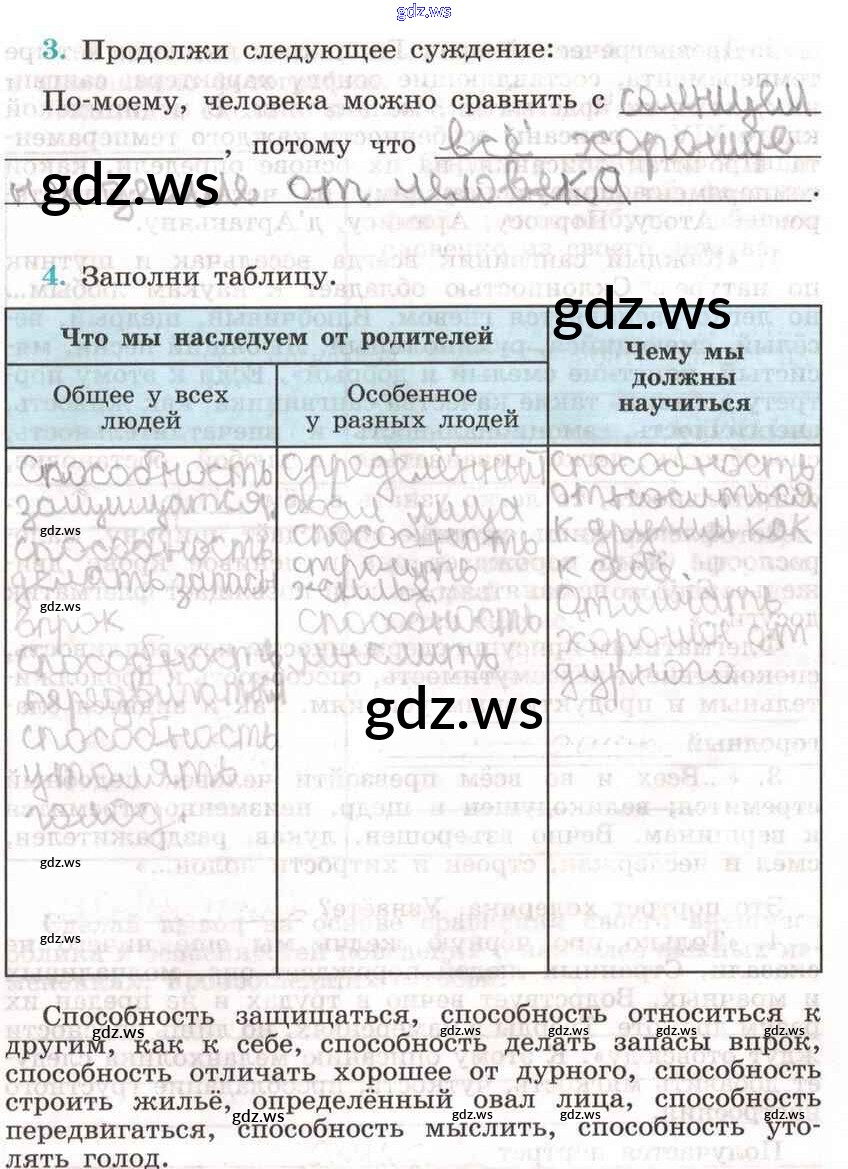 gdz.ws
3. Продолжи следующее суждение:
По-моему, человека можно сравнить с солнцем
, потому что всё хорошее
от человека.
gdz.ws
4. Заполни таблицу.
gdz.ws
Что мы наследуем от родителей
Чему мы
должны
научиться
Общее у всех
людей
Особенное
у разных людей
способность
защищатся,
gdz.ws
способность
делать запасы
gdz.ws
впрок
способность
передвигаться
способность
утолять
голод.
gdz.ws
gdz.ws
определенный
овал лица
способность
строить
жильё
способность
мыслить
gdz.ws
способность
относиться
к другим как
к себе.
отличать
хорошее от
дурного
Способность защищаться, способность относиться к
gdz.ws gdz.ws gdz.ws gdz.ws
другим, как к себе, способность делать запасы впрок,
способность отличать хорошее от дурного, способность
строить жильё, определённый овал лица, способность
gdz.ws gdz.ws gdz.ws
передвигаться, способность мыслить, способность уто-
лять голод.